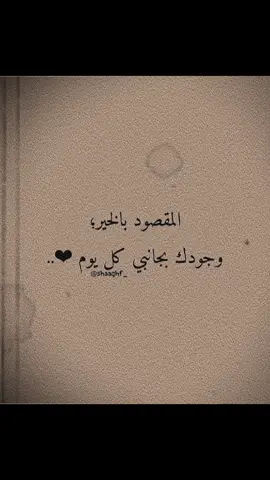 المقصود بالخير؛
وجودك بجانبي كل يوم ❤..
@shaaghf_